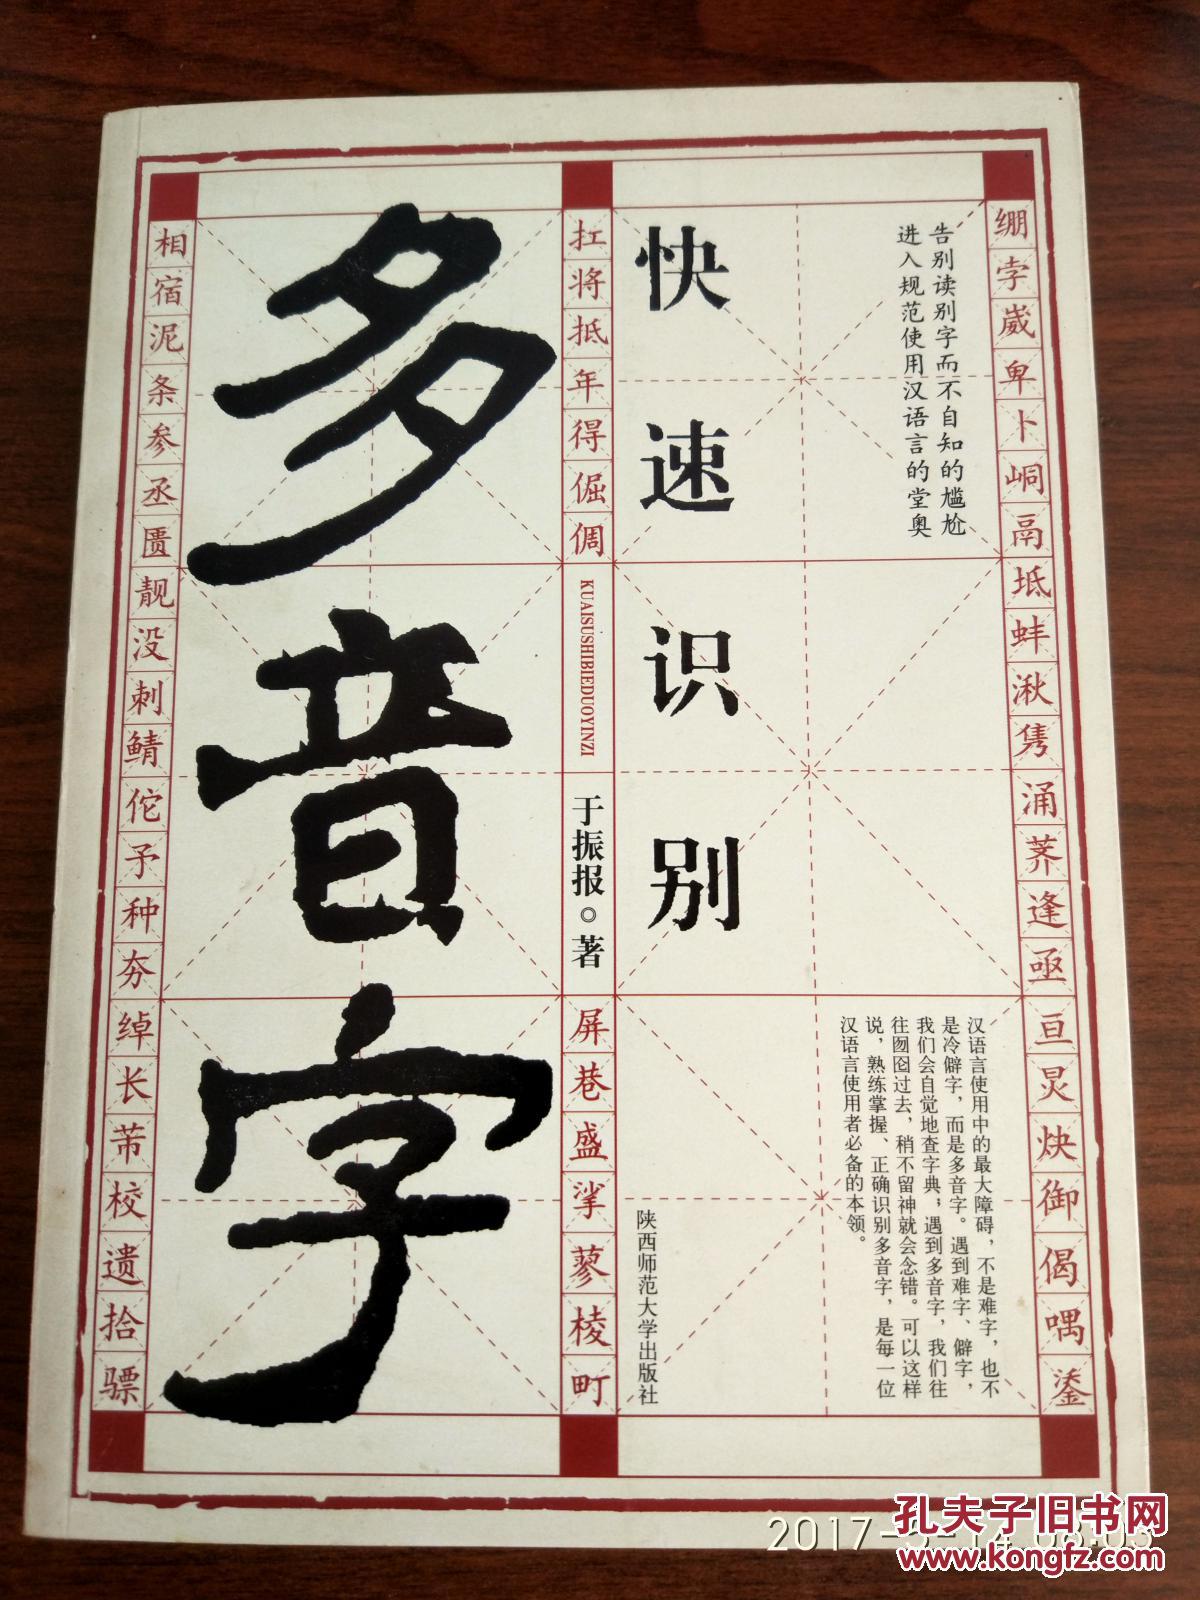 绷孛崴卑卜峒鬲坻蚌湫隽涌荠逢亟亘炅炔御偈喁溱
告别读别字而不自知的尴尬
进入规范使用汉语言的堂奥
汉语言使用中的最大障碍，不是难字，也不
是冷僻字，而是多音字。遇到难字、僻字，
我们会自觉地查字典；遇到多音字，我们往
往囫囵过去，稍不留神就会念错。可以这样
说，熟练掌握、正确识别多音字，是每一位
汉语言使用者必备的本领。
快速识别
陕西师范大学出版社
扛将抵年得倔倜
KUAISUSHIBIEDUOYINZI
于振报◎著
屏巷盛挲蓼棱町
多音字
相宿泥条参丞匮靓没刺鲭佗予种夯绰长芾校遗拾骠
2017-5-14 08:03
孔夫子旧书网
www.kongfz.com